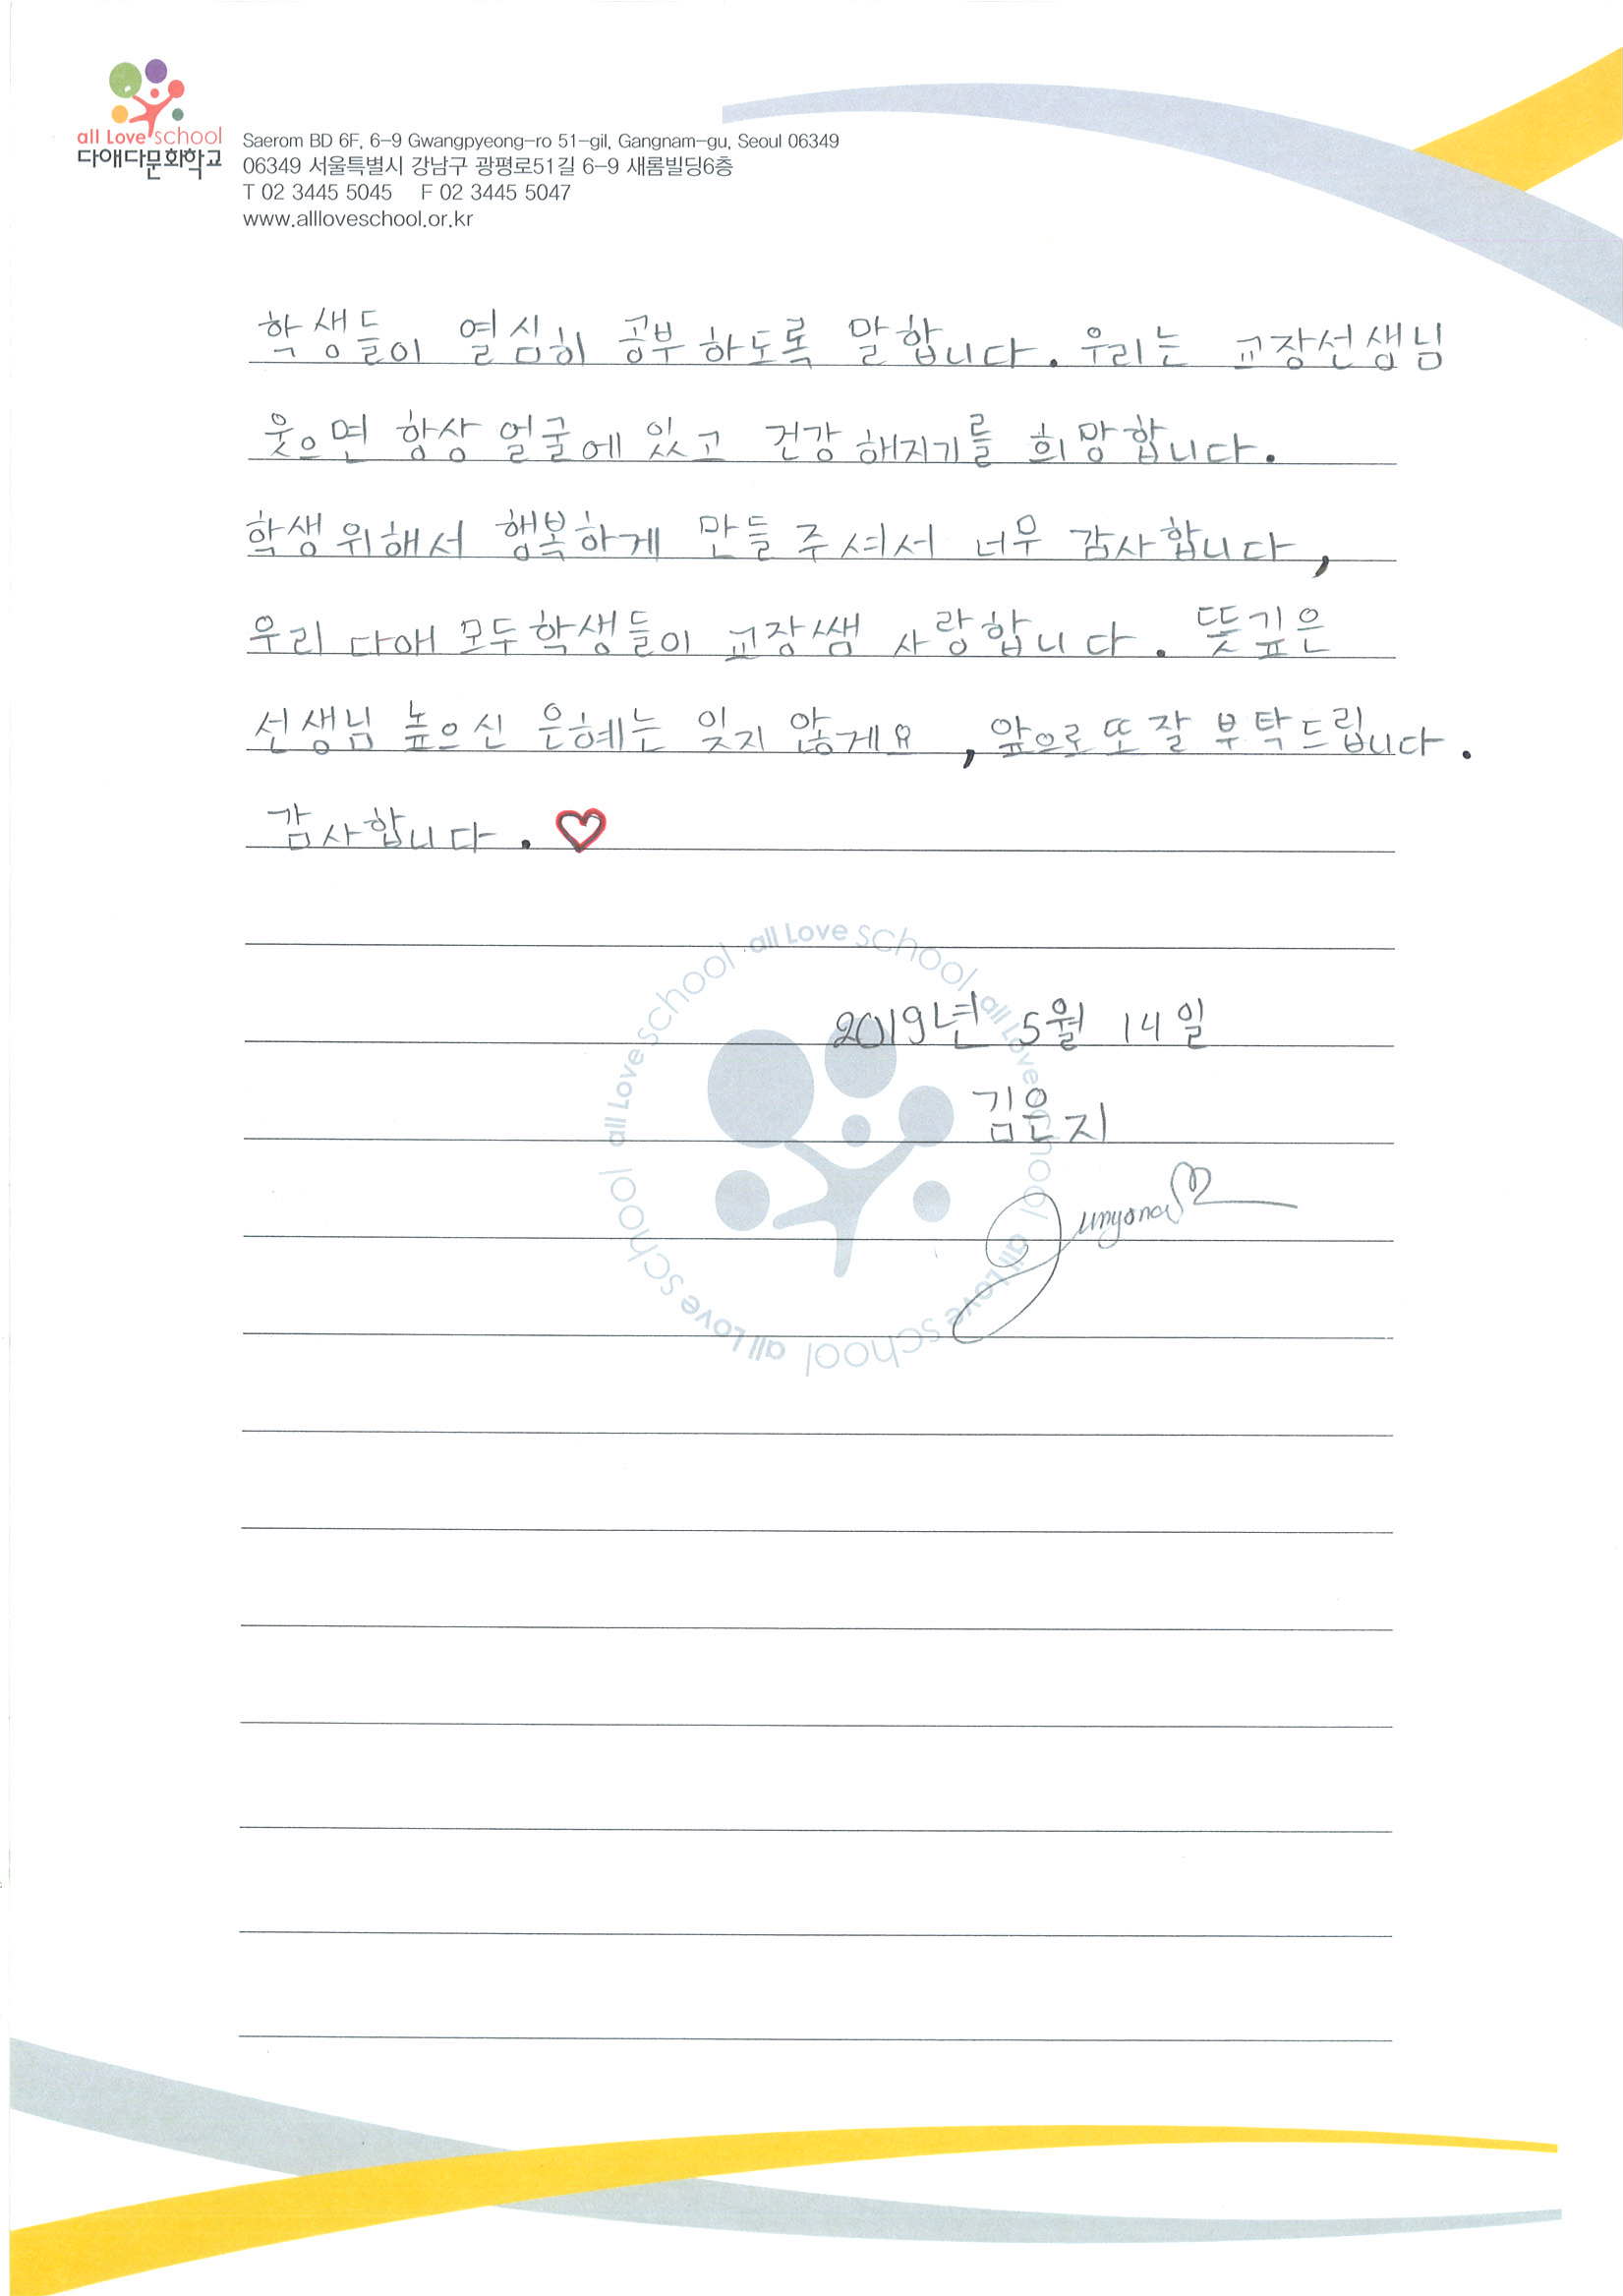 all Love school
다애다문화학교
Saerom BD 6F, 6-9 Gwangpyeong-ro 51-gil, Gangnam-gu, Seoul 06349
06349 서울특별시 강남구 광평로51길 6-9 새롬빌딩6층
T 02 3445 5045 F 02 3445 5047
www.allloveschool.or.kr
학생들이 열심히 공부하도록 말합니다. 우리는 교장선생님
웃으면 항상 얼굴에 있고 건강해지기를 희망합니다.
학생위해서 행복하게 만들 주셔서 너무 감사합니다,
우리 다애 모두학생들이 교장쌤 사랑합니다. 뜻깊은
선생님 높으신 은혜는 잊지 않게요, 앞으로 또 잘 부탁드립니다.
감사합니다. ♡
all Love school all Love school all Love school all Love school all Love school
2019년 5월 14일
김은지